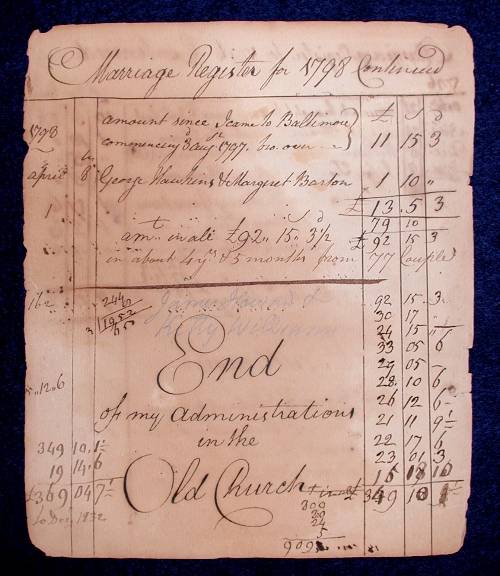 Marriage Register for 1798 Continued
£ S d
amount since I came to Baltimore
commencing 3d augst 1797. bro. over 11 15 3
1798
april 8 George Hawkins & Margeret Barton 1 10 "
£ 13 . 5 3
1 79 10
amt in all £92 " 15 " 3 1/2 £ 92 15 3
in about 4 yrs & 5 months from 77 Couples
162 244 92 15 3
1952 James & 30 17
3 65 Kitty Williams 24 15
33 05 6
End 29 05
5 " 12 " 6 28 10 6
26 12 6
of my administrations 21 11 9 1/2
in the 22 17 6
349 10 1 1/2 23 01 3
19 14 6 Old Church 349 10
£369 04 7 1/2
to Dec 1832
300
30
24
5